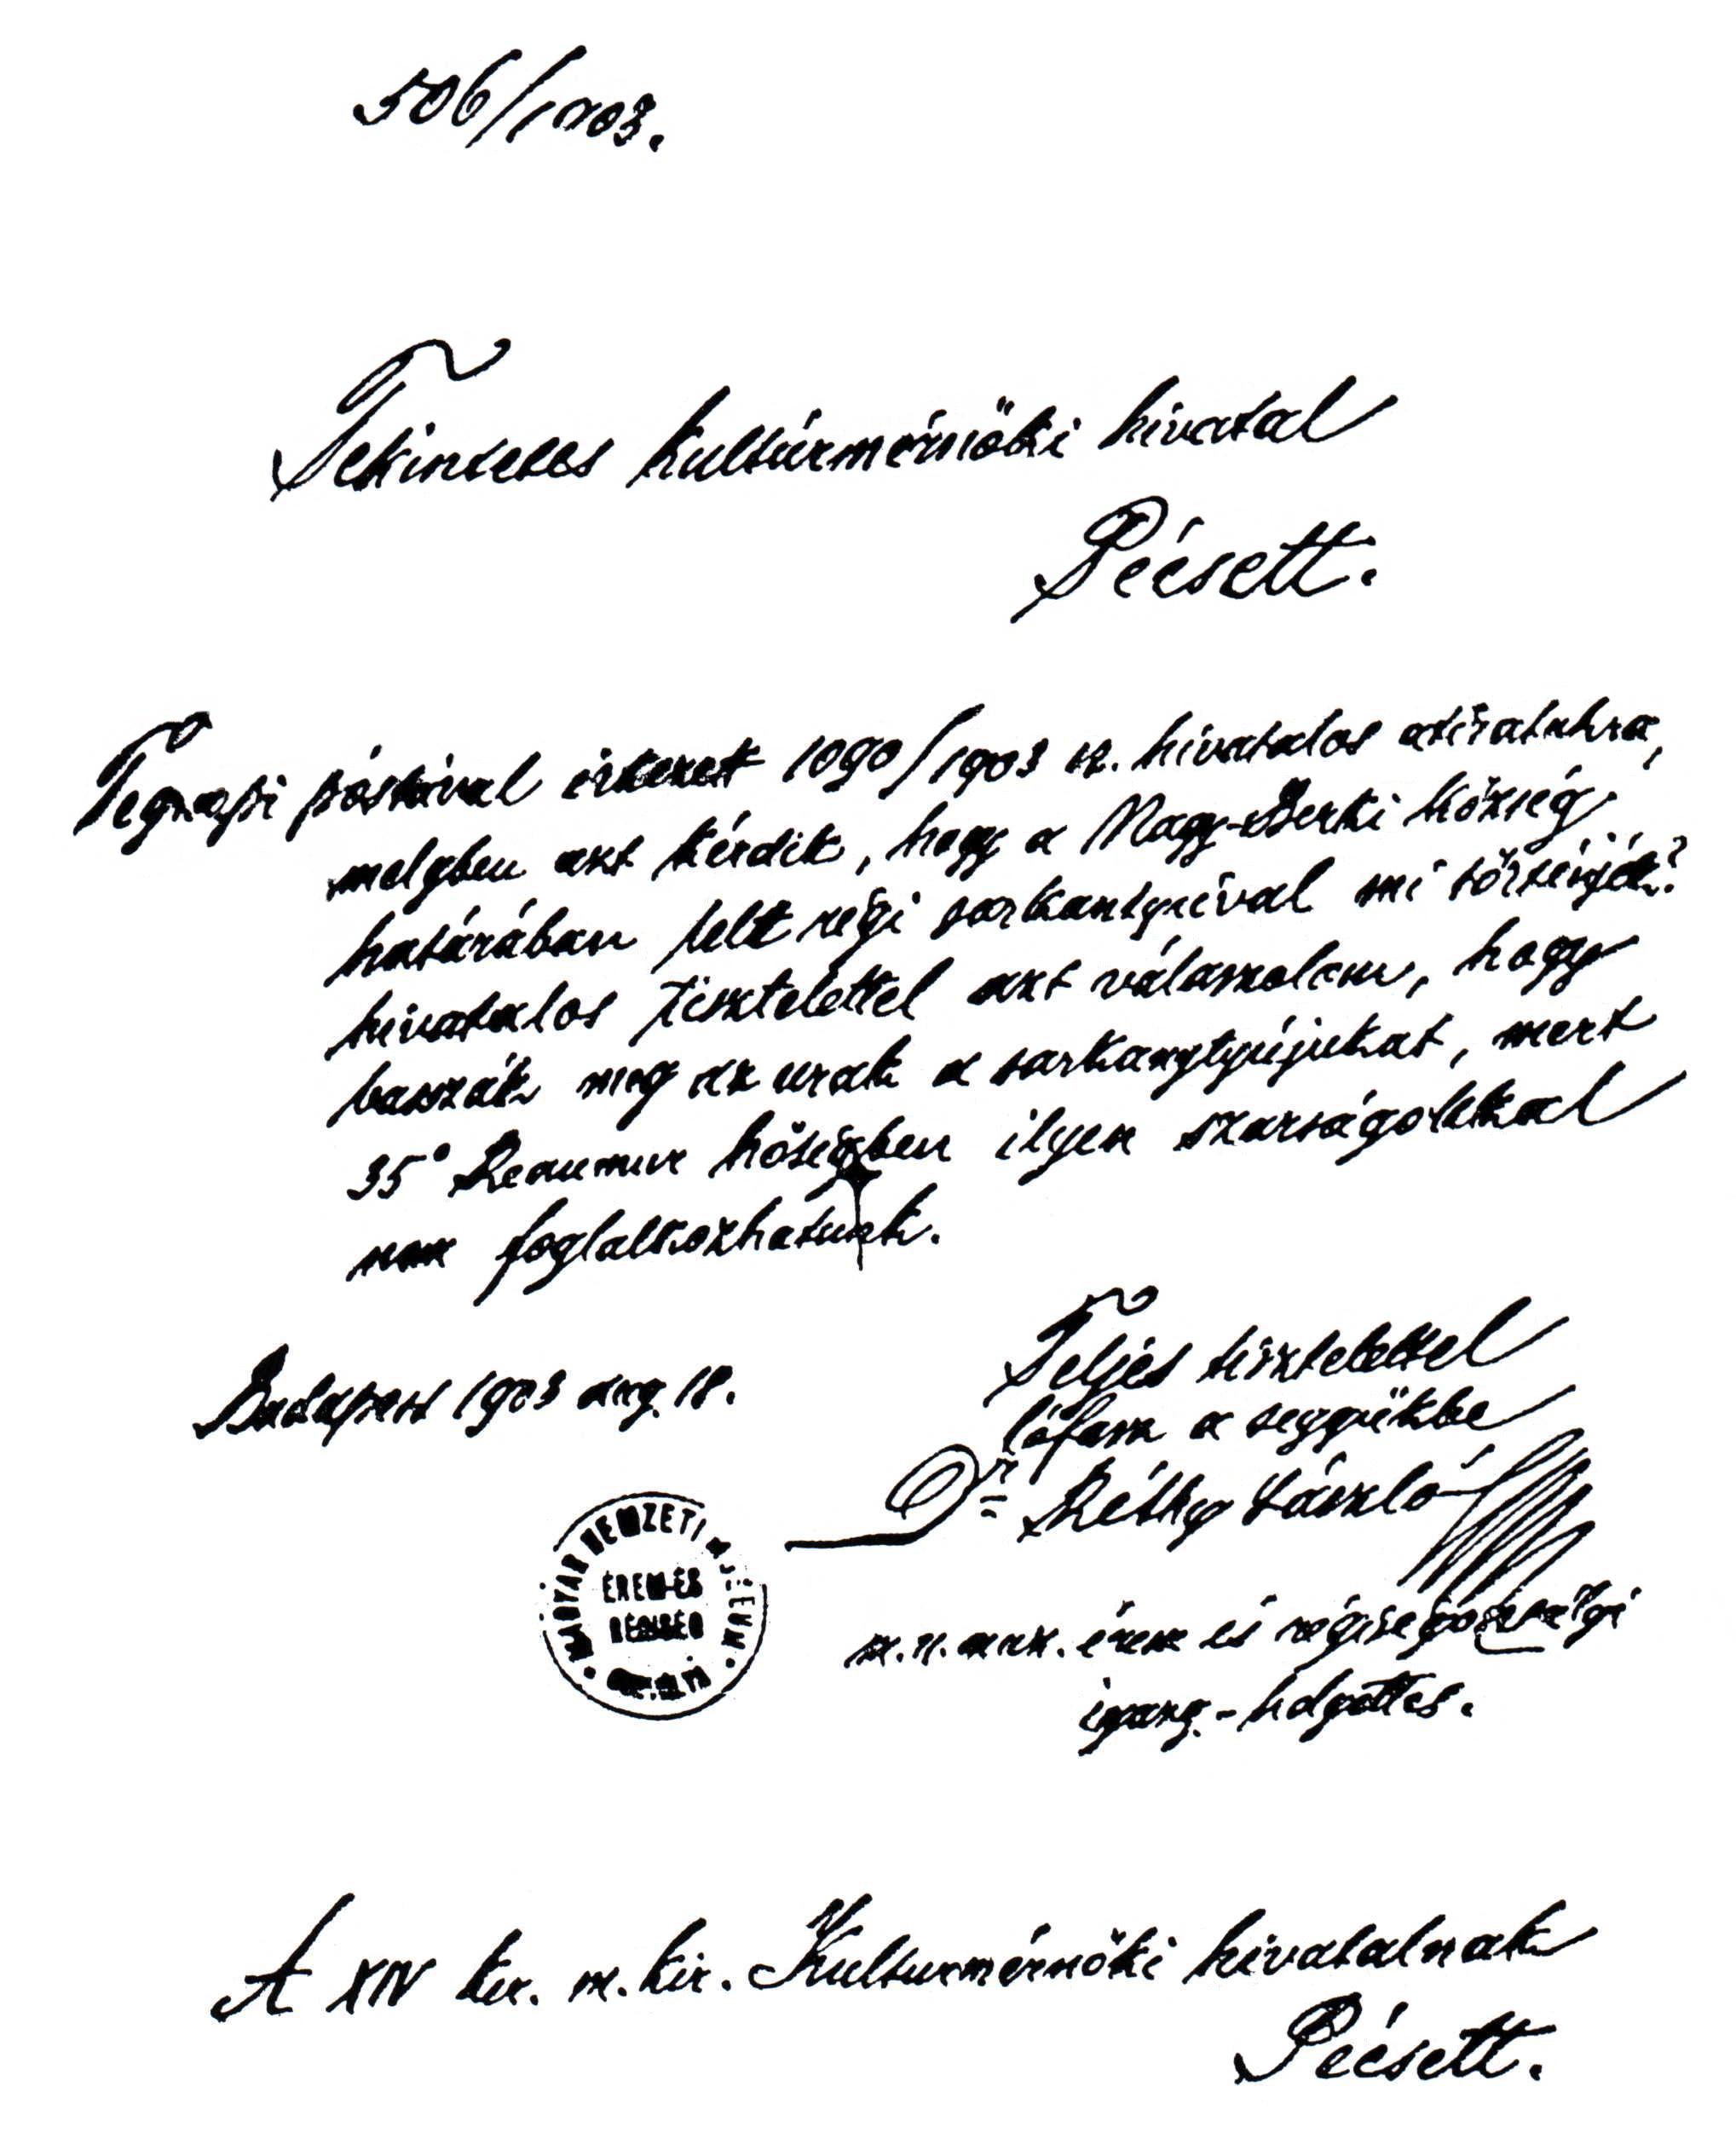 506/1903.
Tekintetes kultúrmérnöki hivatal
Pécsett.
Tegnapi póstával érkezett 1090/1903 sz. hivatalos átiratukra,
melyben azt kérdik, hogy a Nagy-Berki község
határában lelt régi sarkantyúval mi történjék?
hivatalos tisztelettel azt válaszolom, hogy
basszák meg az urak a sarkanytyújukat, mert
35° Reaumur hőségben ilyen szarságokkal
nem foglalkozhatunk.
Budapest 1903 aug. 18.
Teljes tisztelettel
lófasz a seggükbe
Dr Réthy László
m. n. múz. érem és régiségosztályi
igazg.-helyettes.
MAGYAR NEMZETI MÚZEUM
ÉREM-ÉS
A XIV ker. m. kir. Kulturmérnöki hivatalnak
Pécsett.